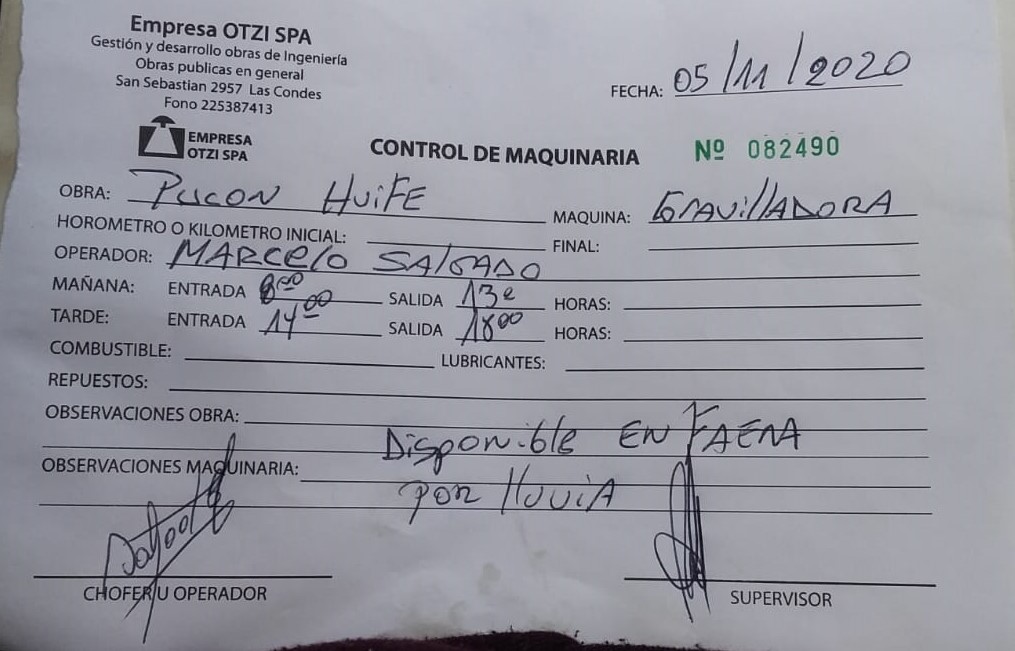 Empresa OTZI SPA
Gestión y desarrollo obras de Ingeniería
Obras publicas en general
San Sebastian 2957 Las Condes
Fono 225387413
FECHA: 05/11/2020
EMPRESA
OTZI SPA
CONTROL DE MAQUINARIA Nº 082490
OBRA: PUCON HUIFE MAQUINA: GRAVILLADORA
HOROMETRO O KILOMETRO INICIAL: FINAL:
OPERADOR: MARCELO SALGADO
MAÑANA: ENTRADA 800 SALIDA 13 HORAS:
TARDE: ENTRADA 1400 SALIDA 1800 HORAS:
COMBUSTIBLE: LUBRICANTES:
REPUESTOS:
OBSERVACIONES OBRA:
Disponible EN FAENA
OBSERVACIONES MAQUINARIA:
POR lluviA
CHOFER/U OPERADOR SUPERVISOR